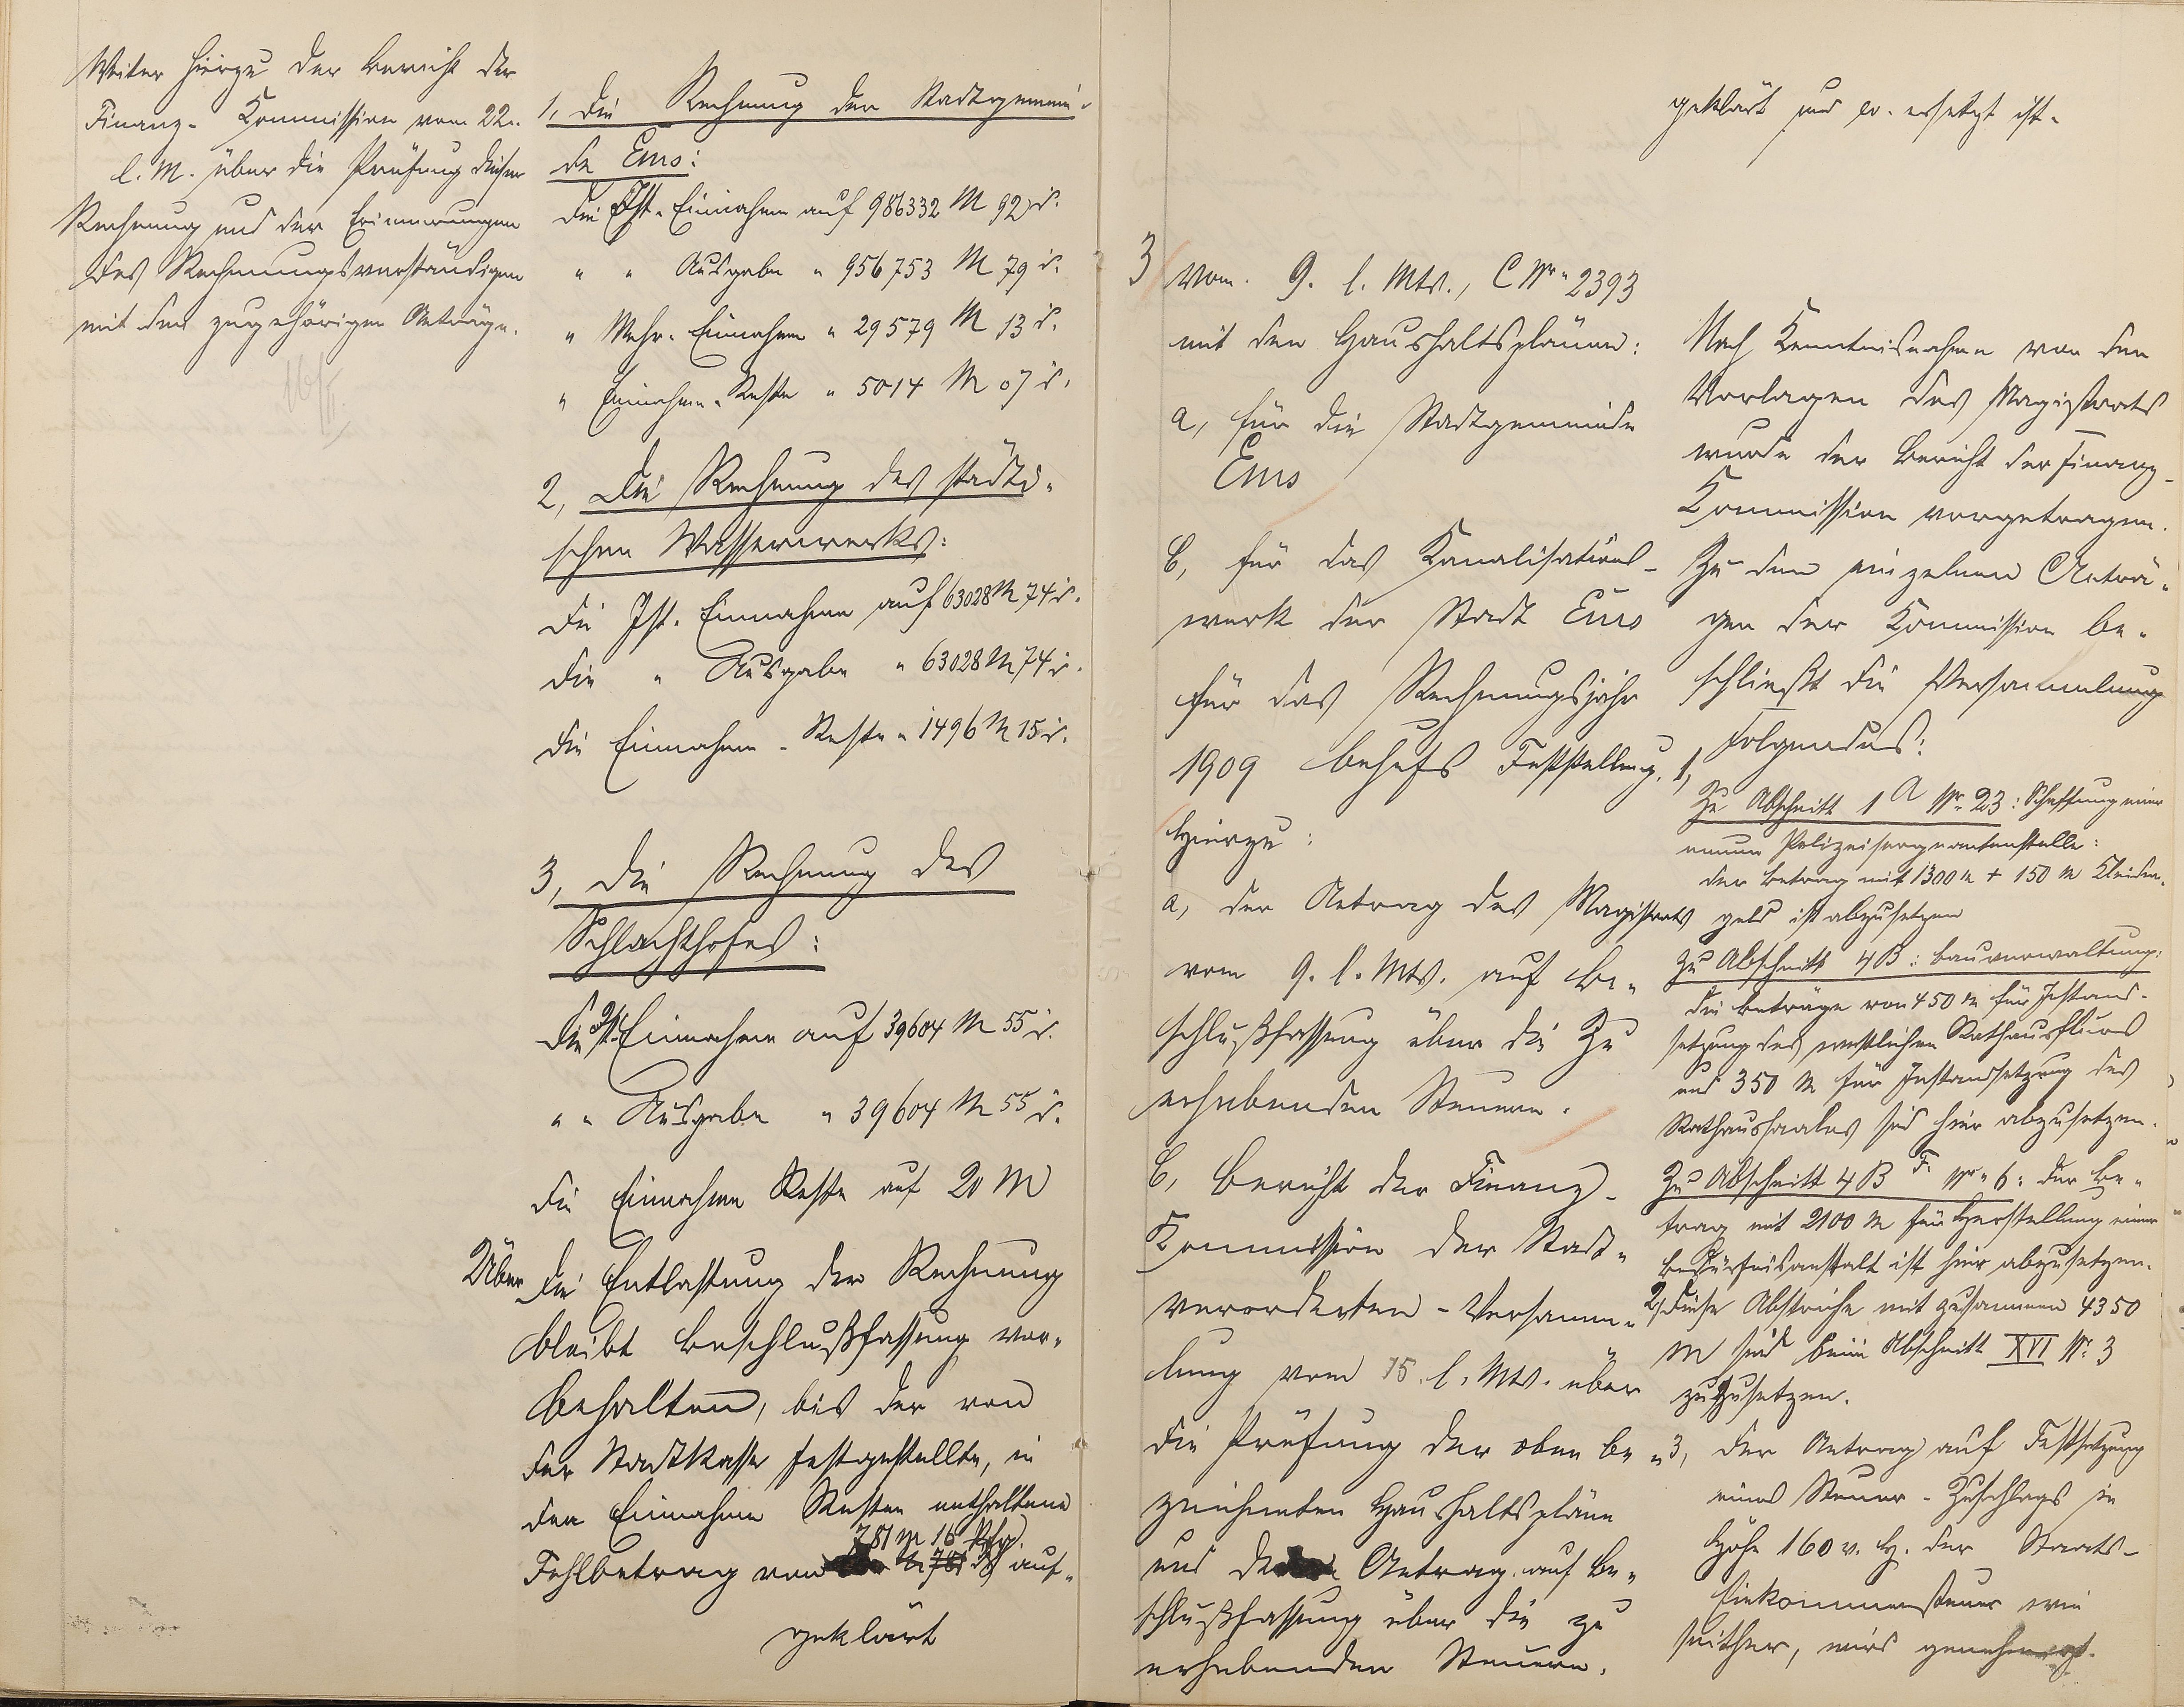 Weiter hierzu der Bericht der
Finanz- Kommission vom 22.
l. M. über die Prüfung dieser
Rechnung und der Erinnerungen
des Rechnungsverständigen
mit den zugehörigen Anträgen.
1, Die Rechnung der Stadtgemein-
de Ems:
die Ist-Einnahme auf 986332 M 92 d.
" " Ausgabe " 956753 M 79 d.
" Mehr-Einnahme " 29579 M 13 d.
" Einnahme-Reste " 5014 M 07 d.
2, Die Rechnung des städti-
schen Wasserwerks:
die Ist-Einnahme auf 63028 M 74 d.
die " Ausgabe " 63028 M 74 d.
die Einnahme-Reste " 1496 M 15 d.
3, die Rechnung des
Schlachthofes:
die Ist Einnahme auf 39604 M 55 d.
" " Ausgabe " 39604 M 55 d.
die Einnahme Reste auf 20 M
Über die Entlastung der Rechnung
bleibt Beschlußfassung vor-
behalten, bis der von
der Stadtkasse festgestellte, in
den Einnahme Resten enthaltene
781 M 16 Pfg.
Fehlbetrag von auf-
geklärt
geklärt und ev. ersetzt ist.
3 Vom 9. l. Mts., C Nr. 2393
mit den Haushaltsplänen:
a, für die Stadtgemeinde
Ems
b, für das Kanalisations-
werk der Stadt Ems
für das Rechnungsjahr
1909 behufs Feststellung.
Hierzu:
a, der Antrag des Magistrats
vom 9. l. Mts. auf Be-
schlußfassung über die zu
erhebenden Steuern.
b, Bericht der Finanz-
Kommission der Stadt-
verordneten-Versamm-
lung vom 15. l. Mts. über
die Prüfung der oben be-
zeichneten Haushaltspläne
und den Antrag auf Be-
schlußfassung über die zu
erhebenden Steuern.
Nach Kenntnisnahme von den
Vorlagen des Magistrats
wurde der Bericht der Finanz-
Kommission vorgetragen.
Zu den einzelnen Anträ-
gen der Kommission be-
schließt die Versammlung
Folgendes:
1, Zu Abschnitt 1 A Nr. 23: Schaffung einer
neuen Polizeisergeantenstelle:
der Betrag mit 1300 M + 150 M Kleider-
geld ist abzusetzen
Zu Abschnitt 4 B: Bauverwaltung:
die Beträge von 450 M für Instand-
setzung des westlichen Rathausflurs
und 350 M für Instandsetzung des
Rathaussaales sind hier abzusetzen.
Zu Abschnitt 4 B F. Nr. 6: der Be-
trag mit 2100 M für Herstellung einer
Bedürfnisanstalt ist hier abzusetzen.
2, Diese Abstriche mit zusammen 4350
M sind beim Abschnitt XVI Nr. 3
zuzusetzen.
3, Der Antrag auf Festsetzung
eines Steuer-Zuschlags in
Höhe 160 v. H. der Staats-
Einkommensteuer wie
seither, wird genehmigt.